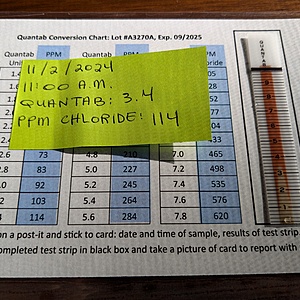 Quantab Conversion Chart: Lot #A3270A, Exp. 09/2025
Quantab PPM Quantab PPM PM
Unit oride
11/2/2024
11:00 A.M.
QUANTAB: 3.4
PPM CHLORIDE: 114
2.6 73 4.8 210 7.0 465
2.8 83 5.0 227 7.2 498
3.0 92 5.2 245 7.4 535
3.2 103 5.4 264 7.6 576
3.4 114 5.6 284 7.8 620
QUANTAB
on a post-it and stick to card: date and time of sample, results of test strip
completed test strip in black box and take a picture of card to report with